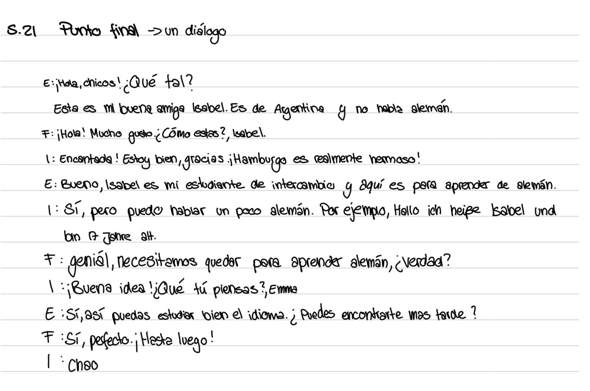 S.21 Punto final → un diálogo
E: ¡Hola, chicos! ¿Qué tal?
Esta es mi buena amiga Isabel. Es de Argentina y no habla alemán.
F: ¡Hola! Mucho gusto ¿Cómo estas?, Isabel.
I: Encantada! Estoy bien, gracias. ¡Hamburgo es realmente hermoso!
E: Bueno, Isabel es mi estudiante de intercambio y aquí es para aprender de alemán.
I: Sí, pero puedo hablar un poco alemán. Por ejemplo, Hallo ich heiße Isabel und
bin 17 Jahre alt.
F: geniál, necesitamos quedar para aprender alemán, ¿verdad?
I: ¡Buena idea! ¿Qué tú piensas?, Emma
E: Sí, así puedas estudiar bien el idioma. ¿Puedes encontrarte mas tarde?
F: Sí, perfecto. ¡Hasta luego!
I: Chao